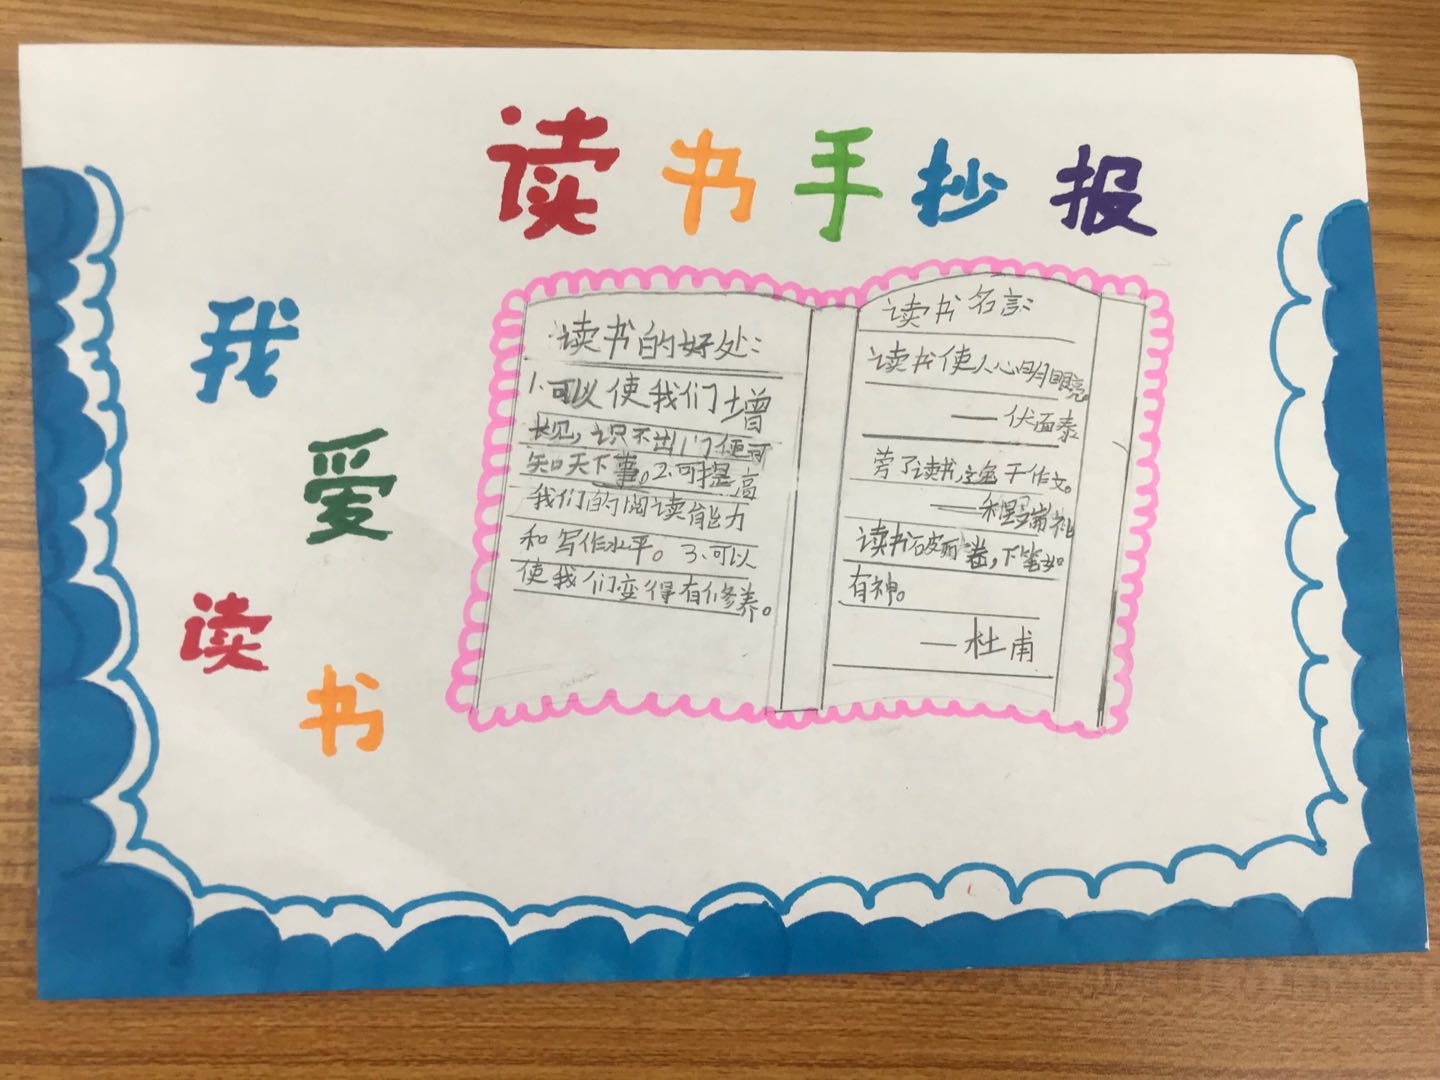 读书手抄报
我
爱
读
书
读书的好处:
1、可以使我们增
长见识,不出门便可
知天下事。2.可提高
我们的阅读能力
和写作水平。3、可以
使我们变得有修养。
读书名言:
读书使人心明眼亮。
——伏面泰
劳了读书,逸于作文。
读书破万卷,下笔如
有神。
——杜甫